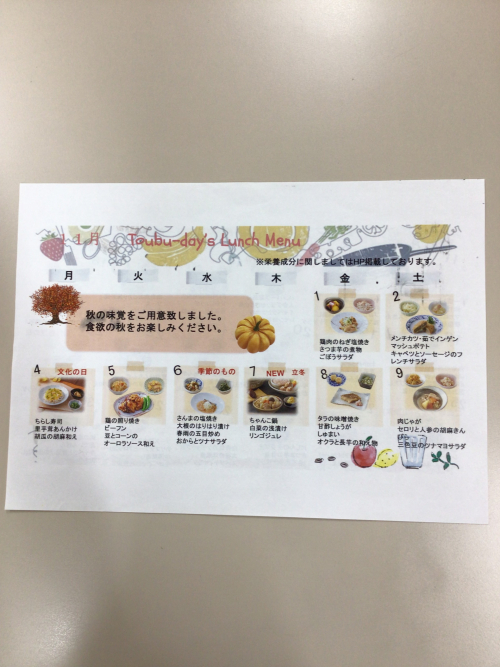 11月 Toubu-day's Lunch Menu
※栄養成分に関しましてはHP掲載しております。
月 火 水 木 金 土
秋の味覚をご用意致しました。
食欲の秋をお楽しみください。
1
鶏肉のねぎ塩焼き
さつま芋の煮物
ごぼうサラダ
2
メンチカツ・茹でインゲン
マッシュポテト
キャベツとソーセージのフ
レンチサラダ
4 文化の日
ちらし寿司
里芋葛あんかけ
胡瓜の胡麻和え
5
鶏の照り焼き
ビーフン
豆とコーンの
オーロラソース和え
6 季節のもの
さんまの塩焼き
大根のはりはり漬け
春雨の五目炒め
おからとツナサラダ
7 NEW 立冬
ちゃんこ鍋
白菜の浅漬け
リンゴジュレ
8
タラの味噌焼き
甘酢しょうが
しゅまい
オクラと長芋の和え物
9
肉じゃが
セロリと人参の胡麻きん
ぴら
三色豆のツナマヨサラダ